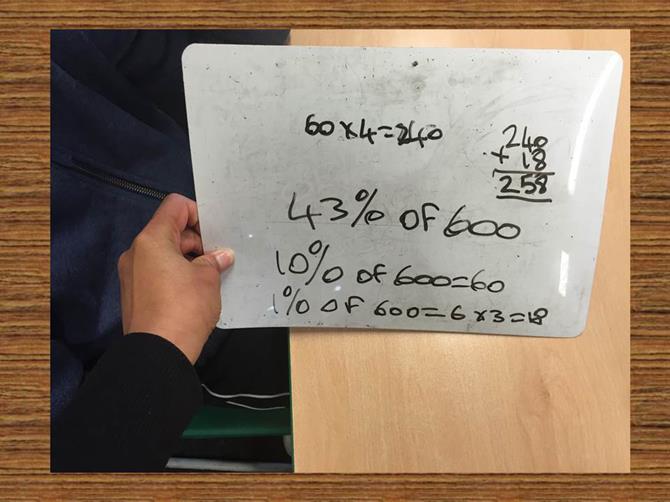 60 x 4 = 240
240
+ 18
258
43% of 600
10% of 600 = 60
1% of 600 = 6 x 3 = 18